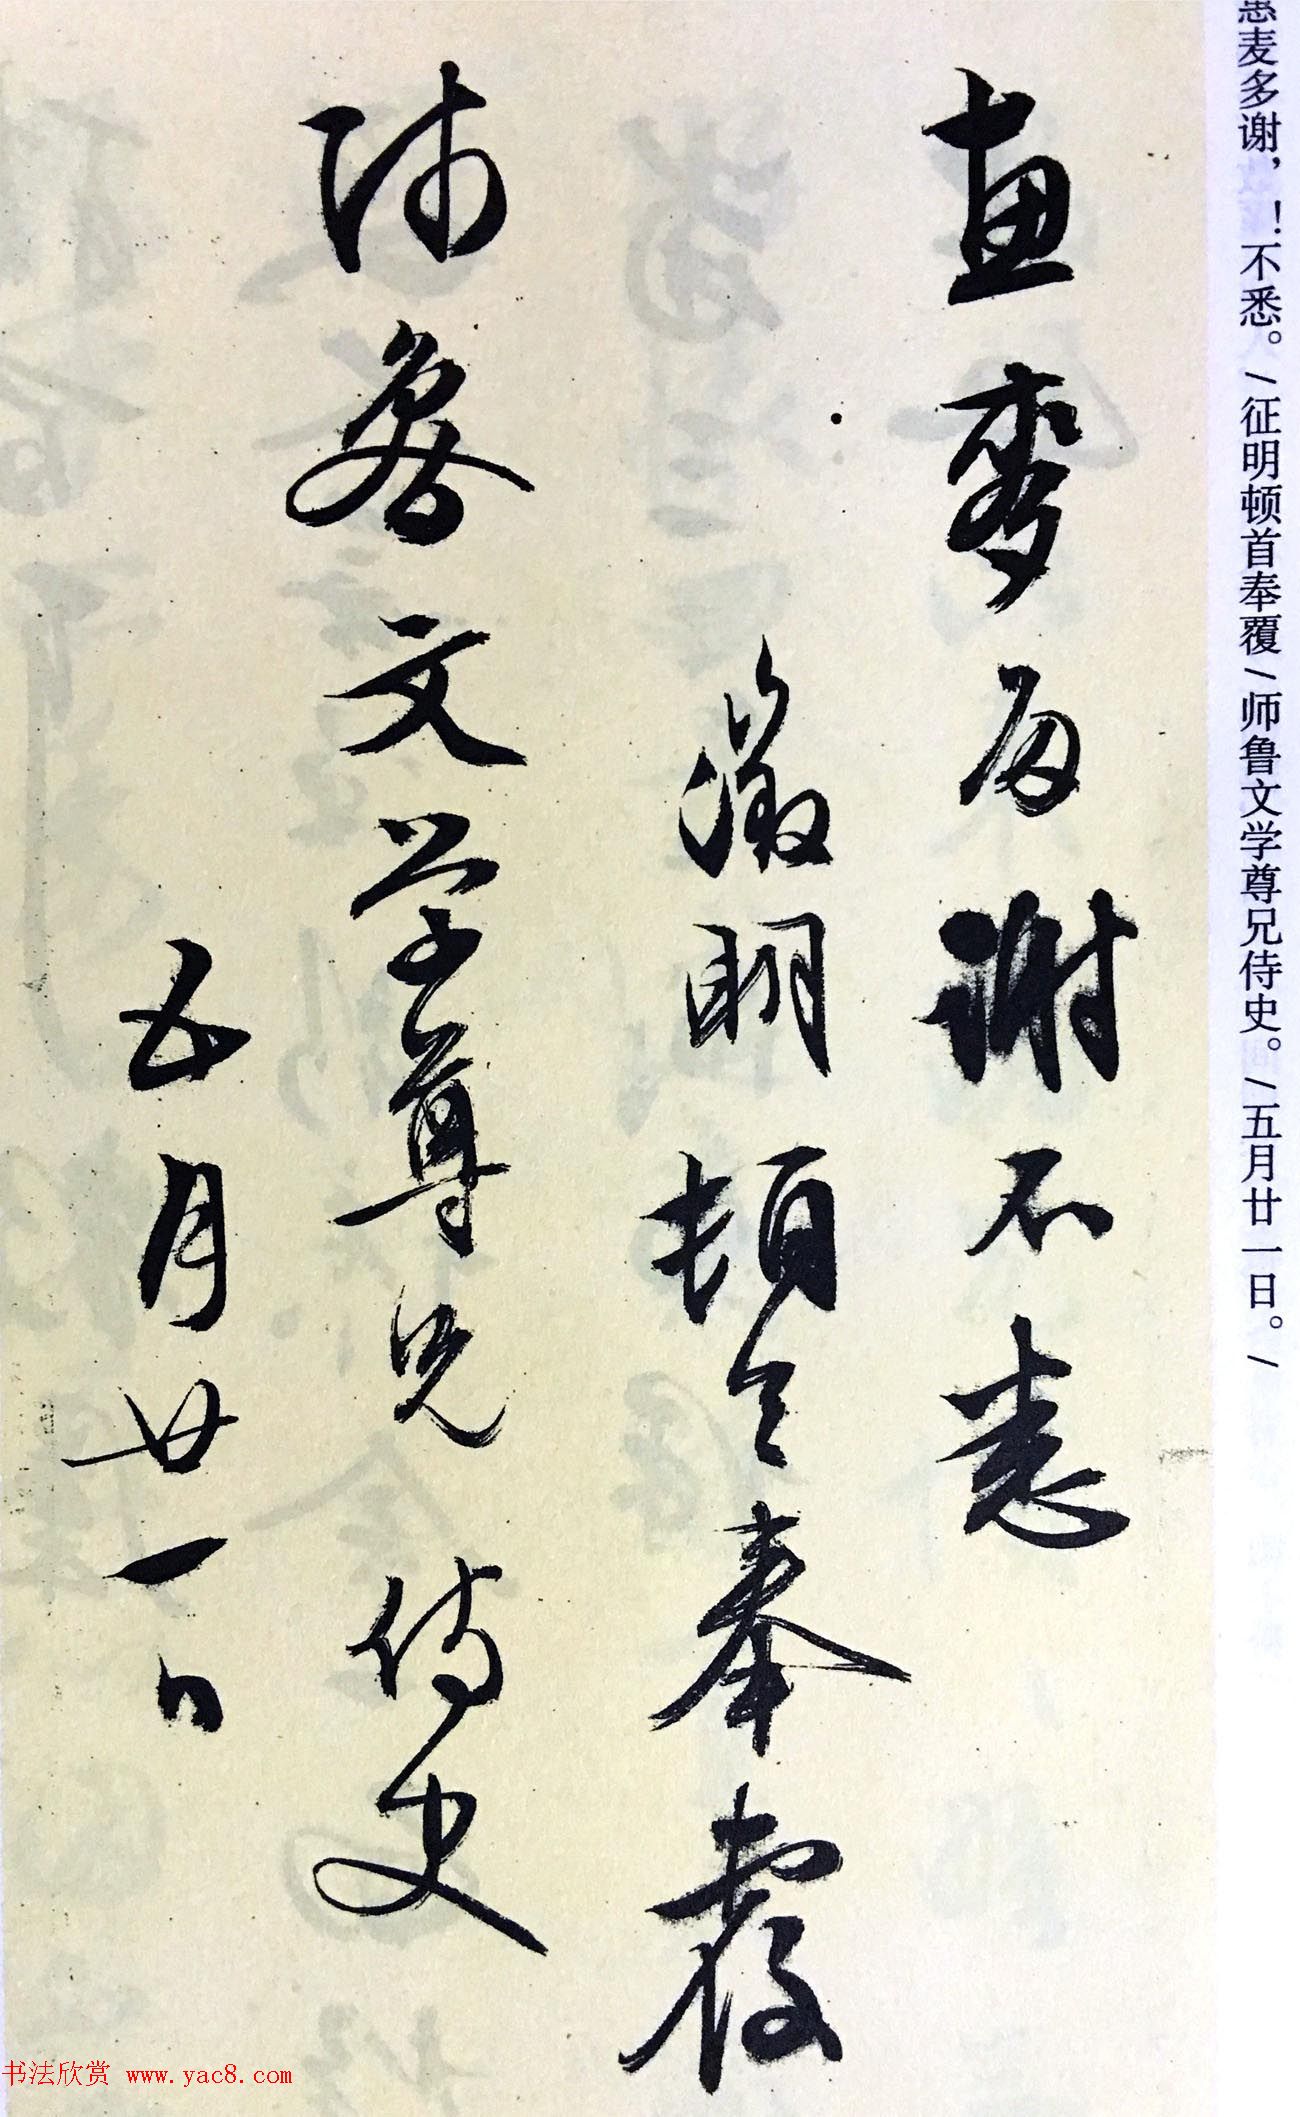 惠麦多谢，！不悉。/征明顿首奉覆/师鲁文学尊兄侍史。/五月廿一日。/
惠麥多謝不悉
徵明頓首奉覆
師魯文学尊兄侍史
五月廿一日
书法欣赏 www.yac8.com